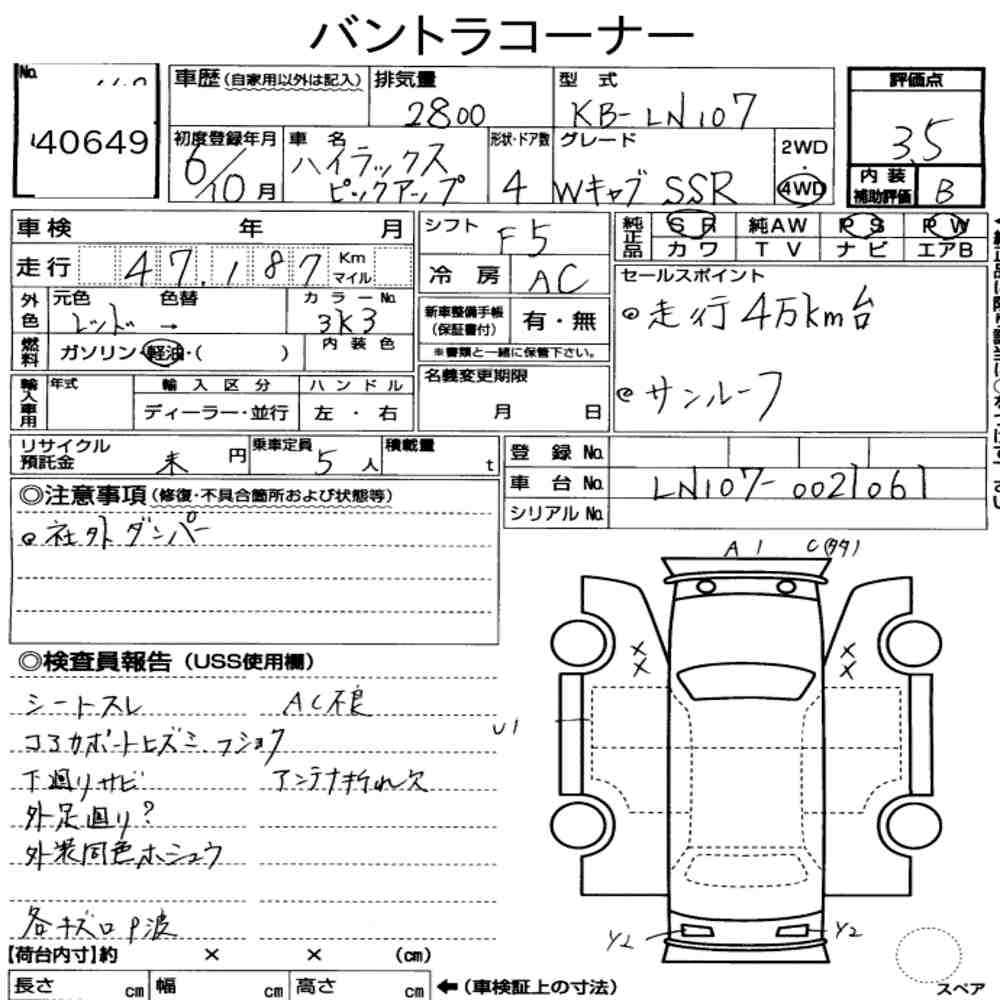 バントラコーナー
No.
40649
車歴(自家用以外は記入)
排気量 2800
型式 KB-LN107
評価点 3.5
初度登録年月 6/10月
車名 ハイラックス
ピックアップ
形状・ドア数 4
グレード Wキャブ SSR
2WD
・
4WD
内装
補助評価 B
車検 年 月
走行 47,187 Km
マイル
シフト F5
冷房 AC
純正品 SR 純AW PS PW
カワ TV ナビ エアB
外色 元色 レッド → 色替
カラーNo. 3K3
燃料 ガソリン・軽油・( )
内装色
新車整備手帳
(保証書付) 有・無
※書類と一緒に保管下さい。
セールスポイント
◎走行4万km台
◎サンルーフ
輸入車用 年式 輸入区分 ハンドル
ディーラー・並行 左・右
名義変更期限
月 日
リサイクル
預託金 未 円
乗車定員 5人
積載量 t
登録No.
車台No. LN107-0021061
シリアルNo.
◎注意事項(修復・不具合箇所および状態等)
◎社外ダンパー
A1 C(タタ)
◎検査員報告(USS使用欄)
シートスレ AC不良
コアサポートヒズミ、フショク
下廻りサビ アンテナ折れ欠
外足廻り?
外装同色ホシュウ
各キズロP波
×
×
×
×
U1
Y2
Y2
【荷台内寸】約 × × (cm)
長さ cm 幅 cm 高さ cm ←(車検証上の寸法)
スペア